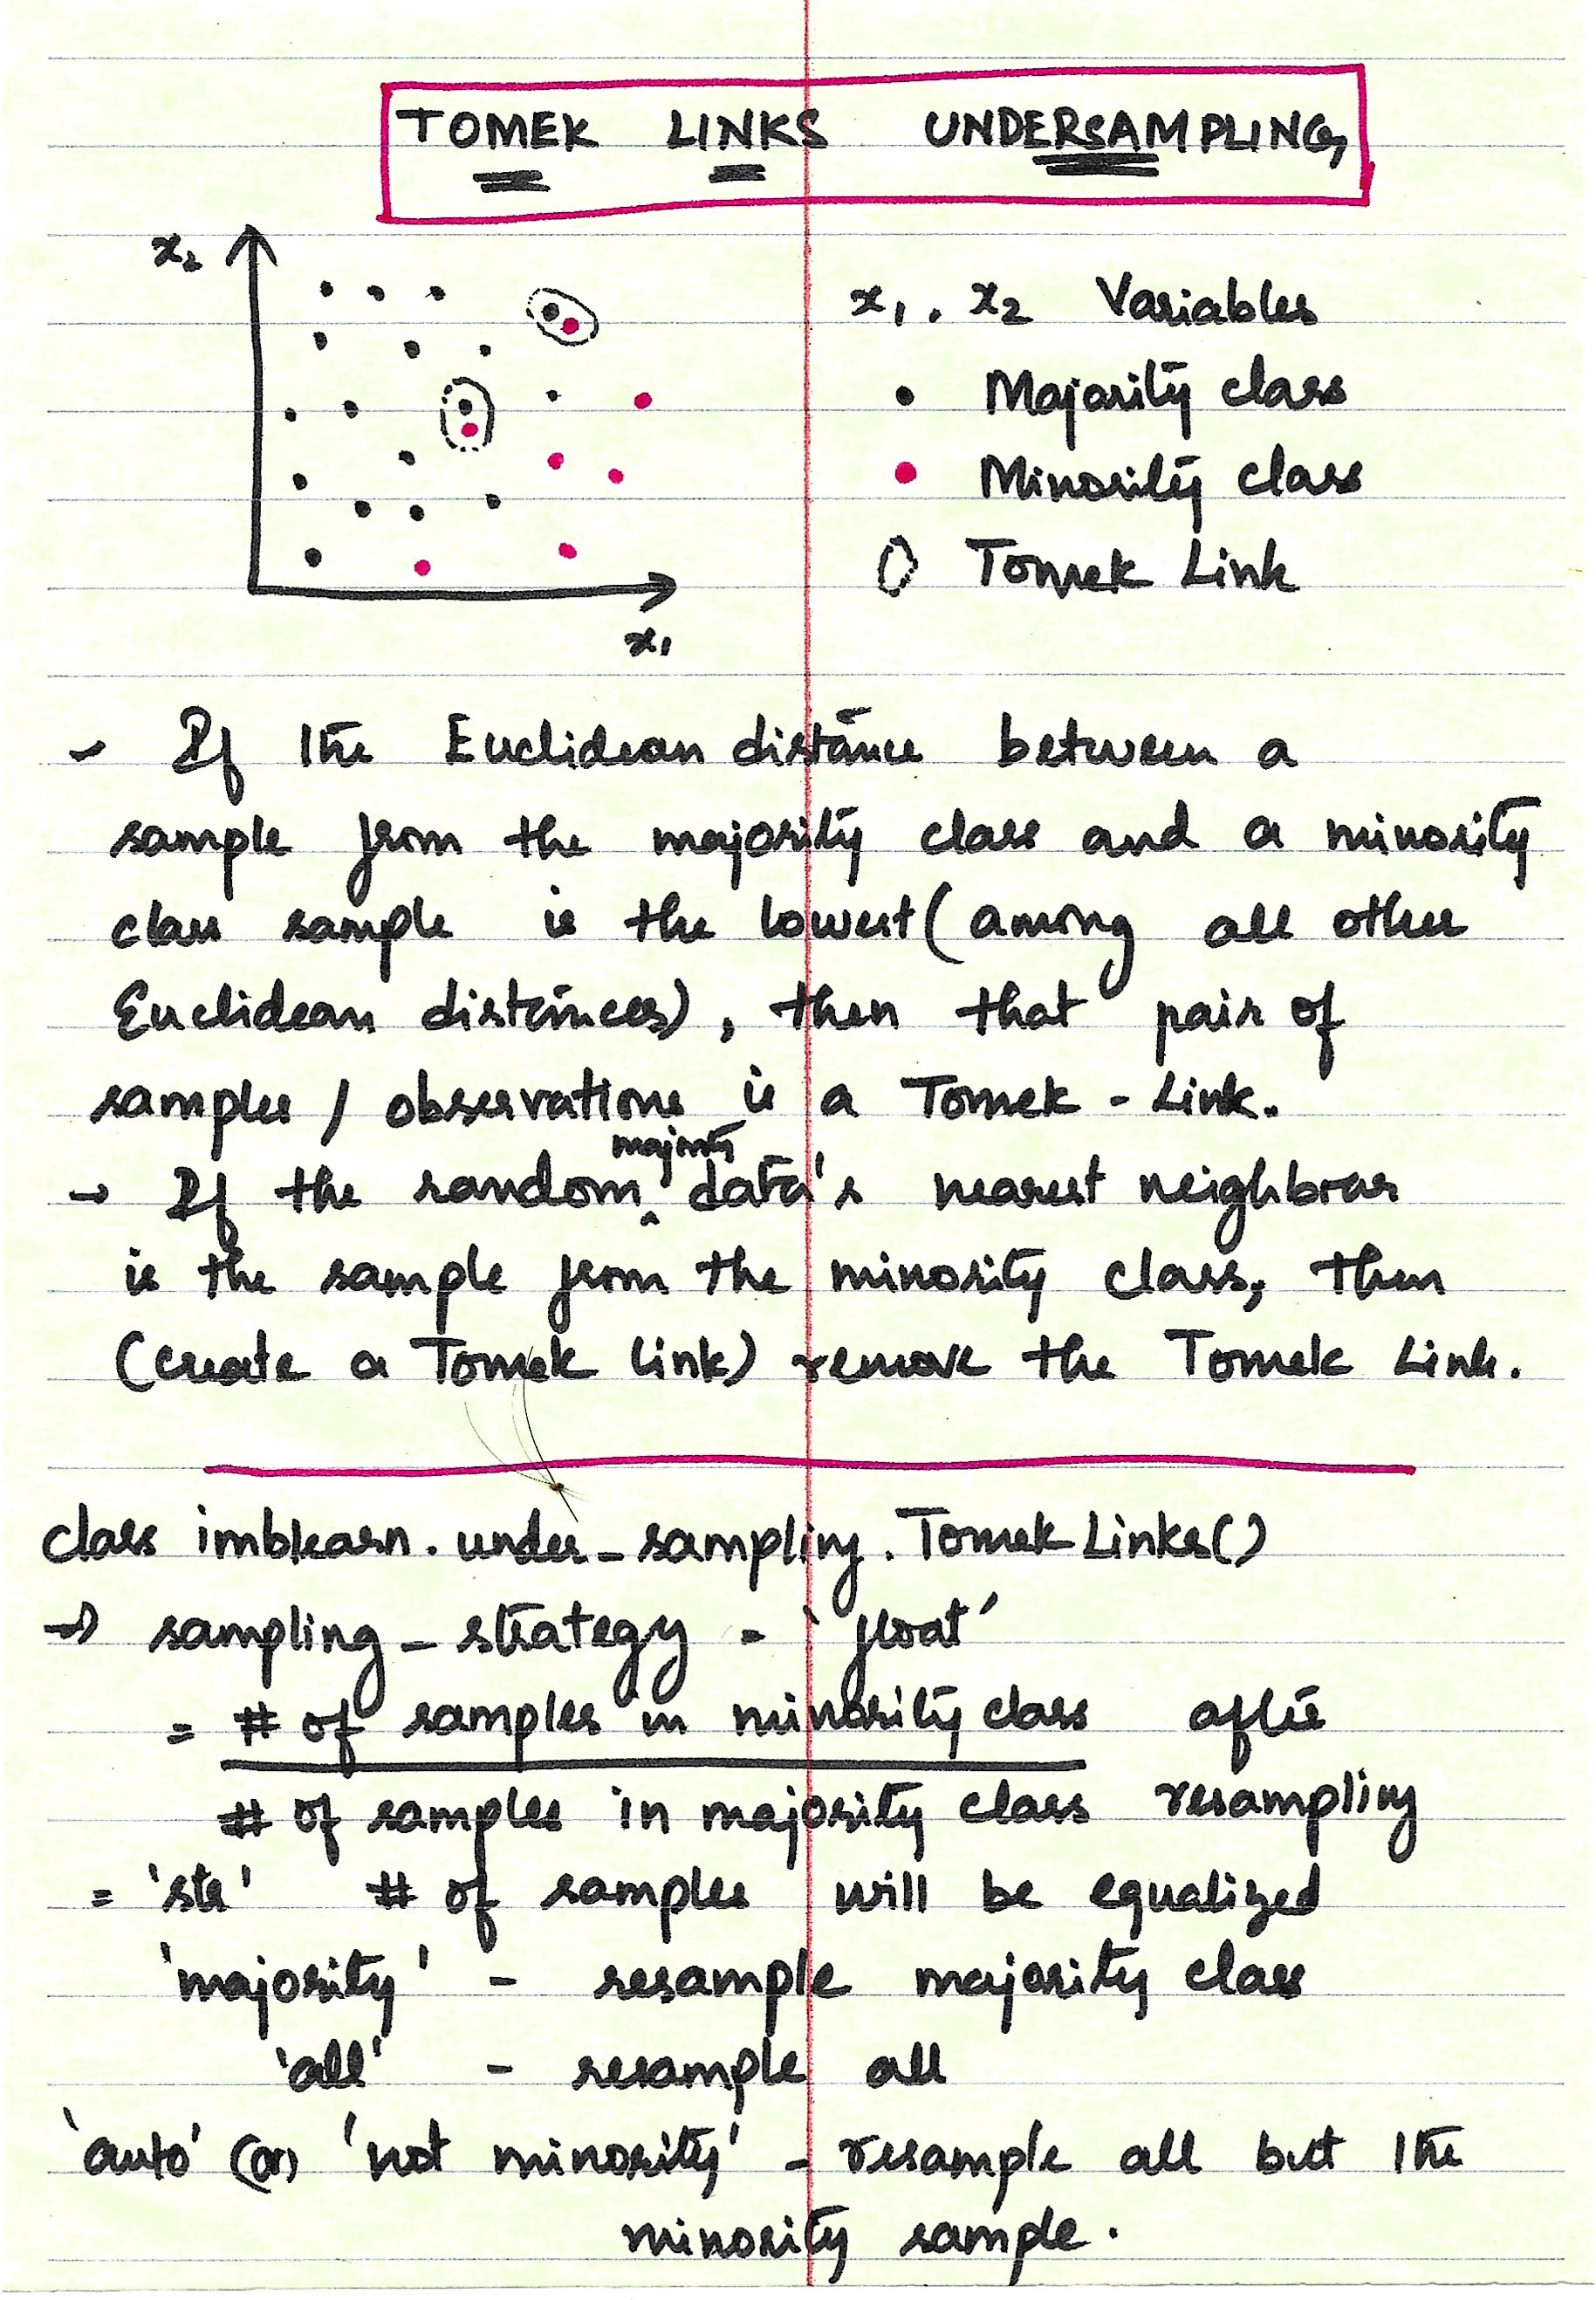 TOMEK LINKS UNDERSAMPLING
x₂
x₁, x₂ Variables
• Majority class
• Minority class
Tomek Link
x₁
- If the Euclidean distance between a
sample from the majority class and a minority
class sample is the lowest (among all other
Euclidean distances), then that pair of
samples / observations is a Tomek - Link.
majority
→ If the random ‸ data's nearest neighbour
is the sample from the minority class, then
(create a Tomek link) remove the Tomek Link.
class imblearn.under_sampling.TomekLinks()
→ sampling_strategy = 'float'
= # of samples in minority class after
# of samples in majority class resampling
= 'str' # of samples will be equalized
'majority' - resample majority class
'all' - resample all
'auto' (or) 'not minority' - resample all but the
minority sample.